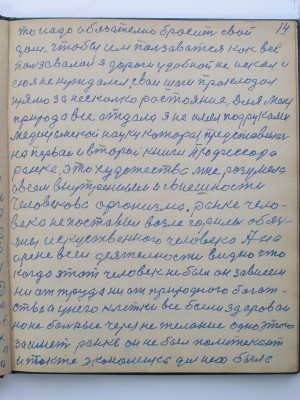 14
то надо обязательно бросить свой
дом, чтобы им ползоватся как все
ползвали я дороги удобной не искал и
сюя не нуждался, свои шаги проклодол
прямо за несколко ростояние, Для меня
природа все отдала я не имел под руками
медицинской науки которая представлял
на первай и второй книги Профессора
ранке, это художества мне, розумела
о всем внутрением и внешности
человекова организма. Ранке чело-
века не поставил возле горилы обезя-
ны искуственного человека А на
сцене всей деятельности видно что
когда этот человек не был он зависем
ни от труда ни от природного богат-
ства у него клетки все были здороваи
но не болные через не желание одно этого
заимет ранке он не был политекаит
и также экономика для него была